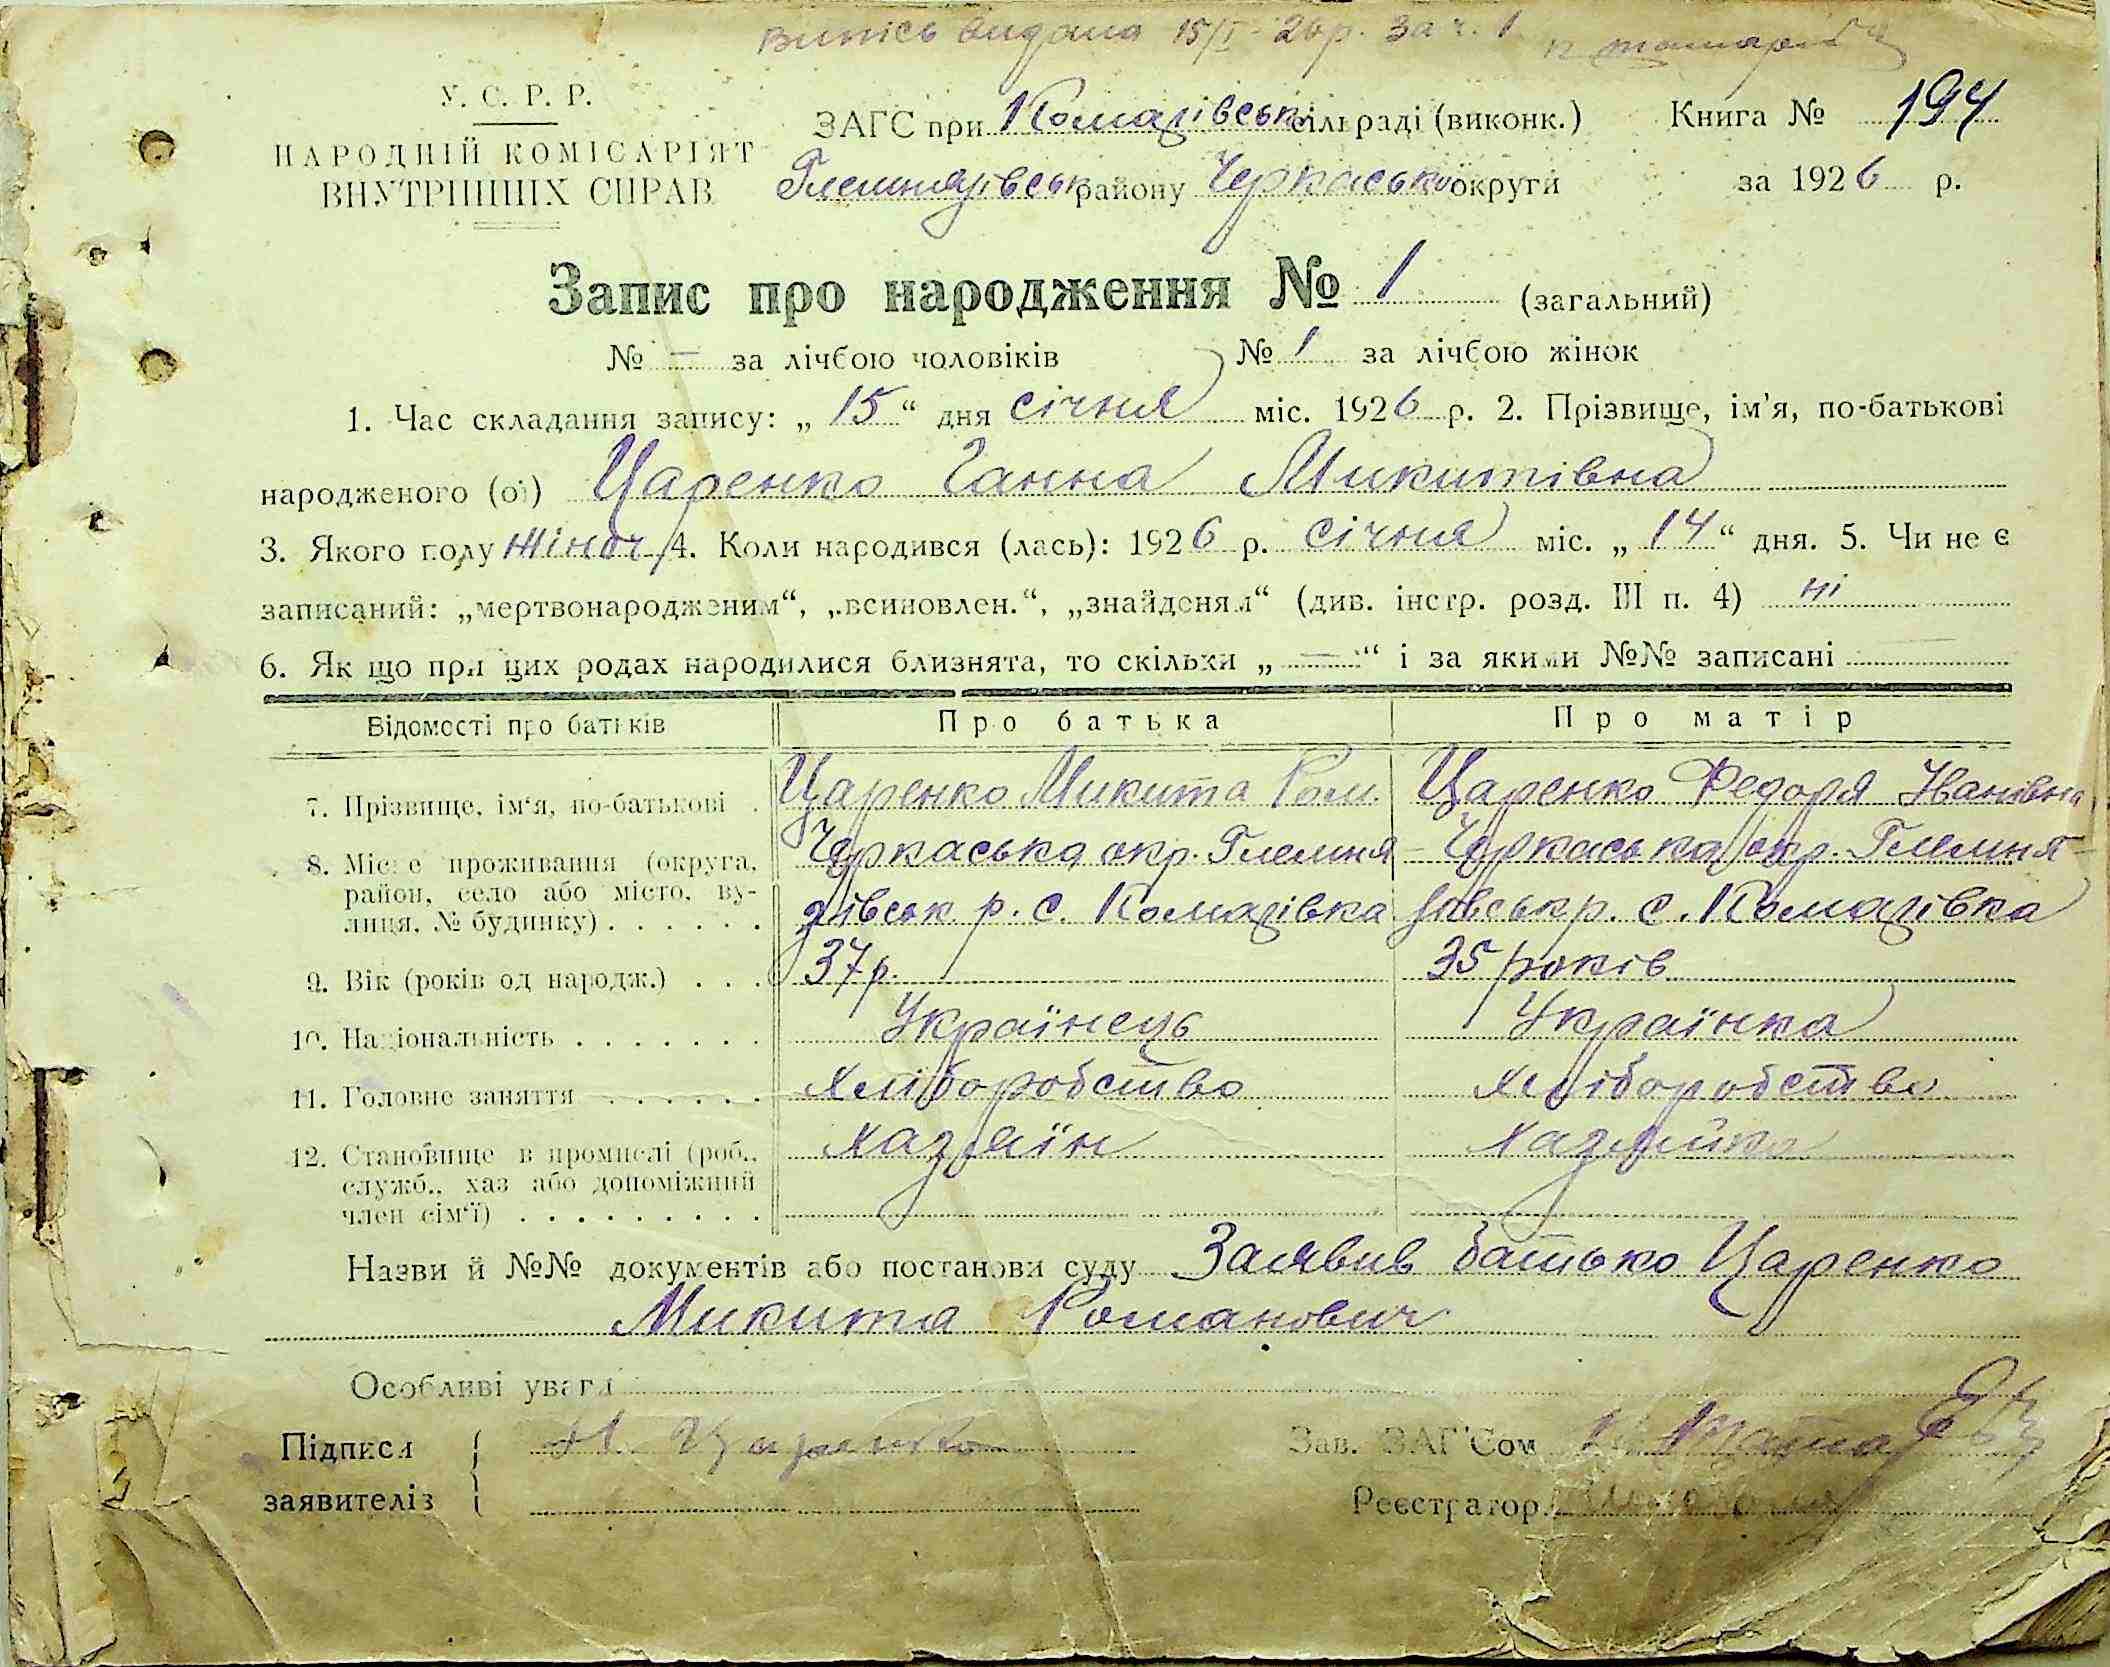 Випісь видана 15/I - 26 р. за ч. 1
У. С. Р. Р.
НАРОДНІЙ КОМІСАРІЯТ
ВНУТРІШНІХ СПРАВ
ЗАГС при Комарівськ. сільраді (виконк.)
Гельмязівськ району Черкаської округи
Книга № 194
за 1926 р.
Запис про народження № 1 (загальний)
№ — за лічбою чоловіків № 1 за лічбою жінок
1. Час складання запису: „ 15 “ дня січня міс. 1926 р. 2. Прізвище, ім'я, по-батькові
народженого (ої) Царенко Ганна Микитівна
3. Якого полу жіноч. 4. Коли народився (лась): 1926 р. січня міс. „ 14 “ дня. 5. Чи не є
записаний: „мертвонародженим“, „всиновлен.“, „знайденям“ (див. інстр. розд. III п. 4) ні
6. Як що при цих родах народилися близнята, то скільки „ — “ і за якими №№ записані
Відомості про батьків Про батька Про матір
7. Прізвище, ім'я, по-батькові . Царенко Микита Ром. Царенко Федоря Іванівна
8. Місце проживання (округа, район, село або місто, вулиця, № будинку) . . . . . .
Черкаська окр. Глемня
зівськ р. с. Комарівка
Черкаська окр. Глемня-
зівськ р. с. Комарівка
9. Вік (років од народж.) . . . 37 р. 35 років
10. Національність . . . . . . . Українець Українка
11. Головне заняття . . . . . . Хліборобство Хліборобство
12. Становище в промислі (роб., служб., хаз або допоміжний член сім'ї) . . . . . . . . .
Хазяїн Хазяйка
Назви й №№ документів або постанови суду Заявив батько Царенко
Микита Романович
Особливі уваги
Підписи
заявителів
М. Царенко
Зав. ЗАГ'Сом
Реєстратор